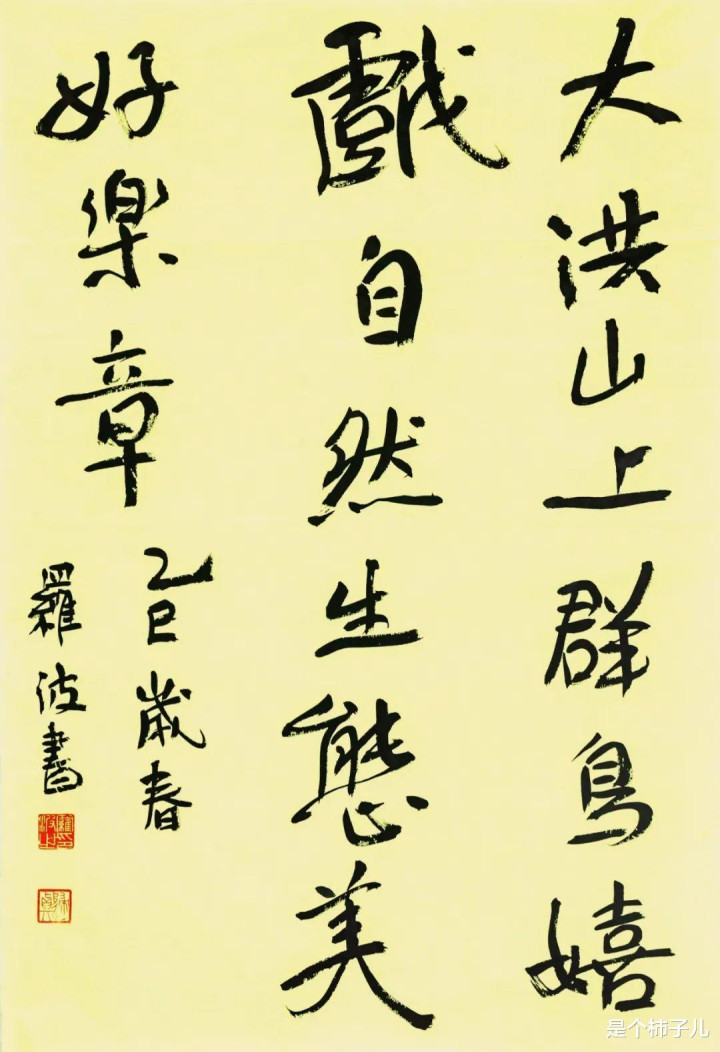 大洪山上群鳥嬉
戲自然生態美
好樂章
乙巳歲春
羅波書
是个柿子儿